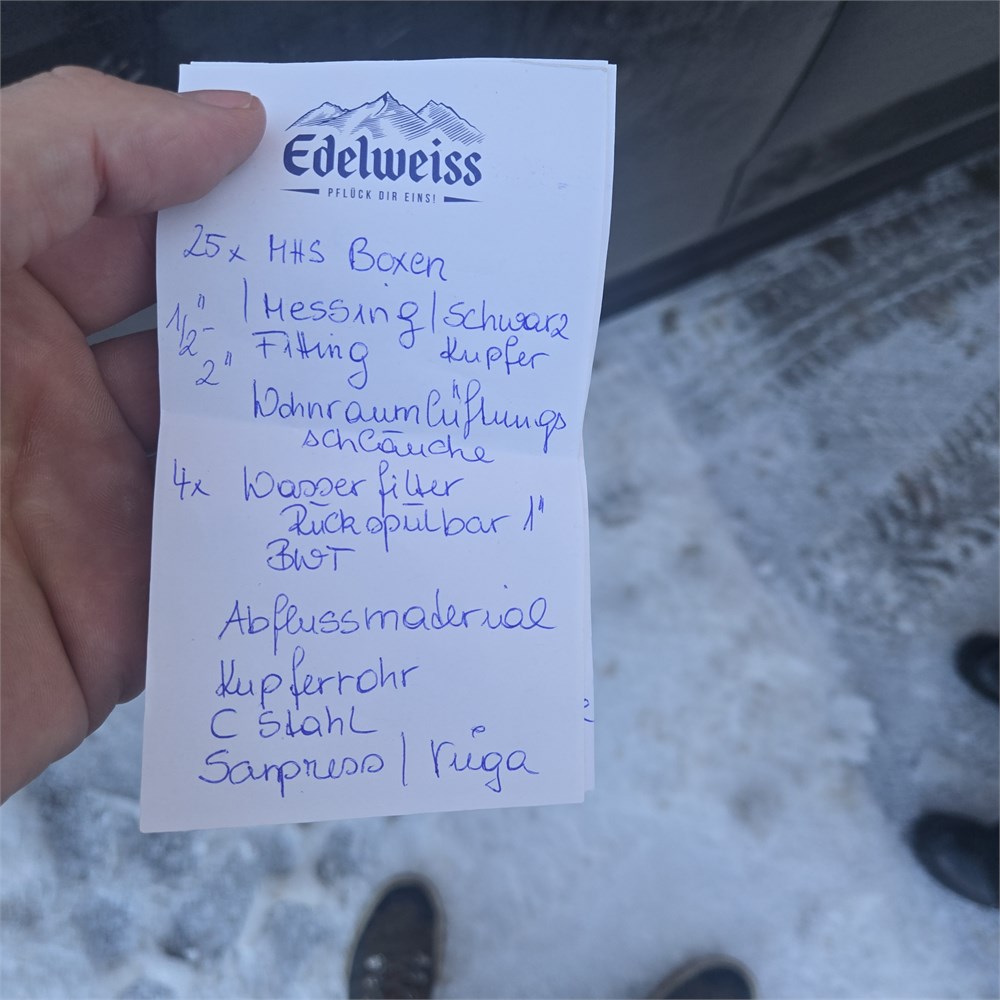 Edelweiss
PFLÜCK DIR EINS!
25x MHS Boxen
1/2"- | Messing | Schwarz
2" Fitting Kupfer
Wohnraumlüftungs
schläuche
4x Wasserfilter
Rückspülbar 1"
BWT
Abflussmaterial
Kupferrohr
C Stahl
Sanpress |